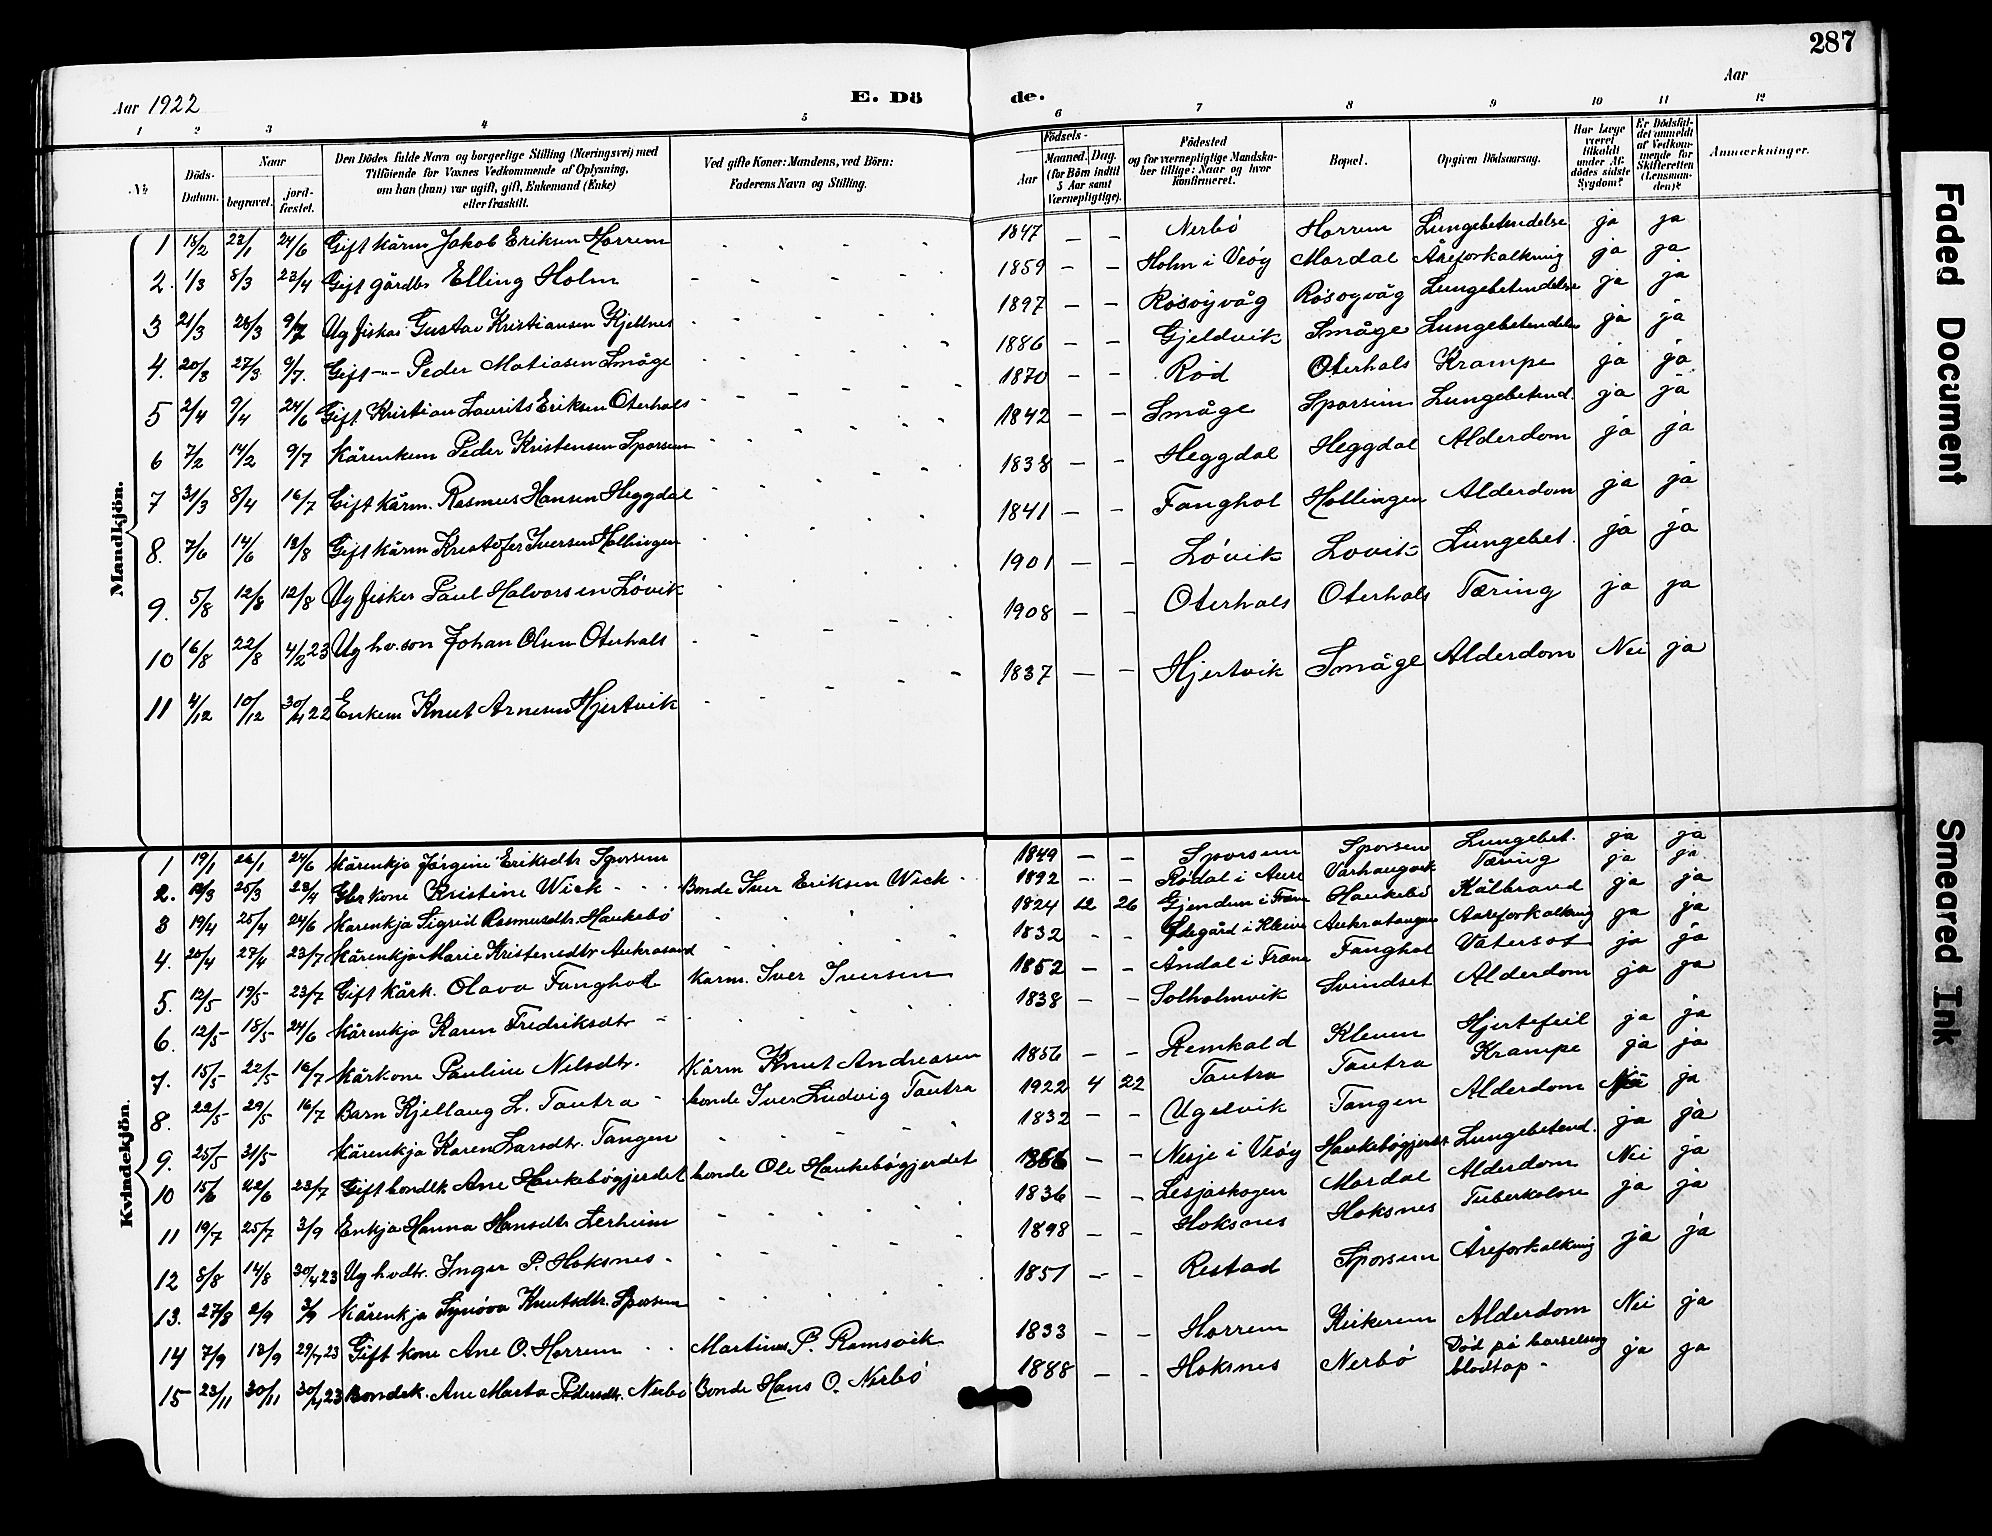 287
Aar 1922
E. Dö de.
Aar
1 2 3 4 5 6 7 8 9 10 11 12
№
Döds-Datum.
Naar begravet. jord-fæstet.
Den Dödes fulde Navn og borgerlige Stilling (Næringsvei) med Tilföiende for Voxnes Vedkommende af Oplysning, om han (hun) var ugift, gift, Enkemand (Enke) eller fraskilt.
Ved gifte Koner: Mandens, ved Börn: Faderens Navn og Stilling.
Födsels- Aar Maaned. Dag. (for Börn indtil 5 Aar samt Værnepligtige).
Födested og for værnepligtige Mandska-ber tillige: Naar og hvor konfirmeret.
Bopæl.
Opgiven Dödsaarsag.
Har Læge været tilkaldt under Af-dödes sidste Sygdom?
Er Dödsfal-det anmeldt af Vedkom-mende for Skifteretten (Lensman-den)?
Anmærkninger.
Mandkjön.
1 18/2 23/1 24/6 Gift kårm Jakob Eriksen Horrem 1847 – – Nerbö Horrem Lungebetendelse ja ja
2. 1/3 8/3 23/4 Gift gårdbr Elling Holm 1859 – – Holm i Veöy Mordal Åreforkalkning ja ja
3 21/3 28/3 9/7 Ug fisker Gustav Kristiansen Kjellnes 1897 – – Rösoyvåg Rösoyvåg Lungebetendelse ja ja
4. 20/3 27/3 9/7. Gift -"- Peder Matiasen Småge 1886 – – Gjeldvik Småge Lungebetendelse ja ja
5 2/4 9/4 24/6 Gift Kristian Laurits Eriksen Oterhals 1870 – – Röd Oterhals Krampe ja ja
6 7/2 14/2 9/7 Kårenkem Peder Kristensen Sporsem 1842 – – Småge Sporsem Lungebetend. ja ja
7 31/3 8/4 16/7 Gift kårm. Rasmus Hansen Heggdal 1838 – – Heggdal Heggdal Alderdom ja ja
8. 7/6 14/6 13/8 Gift kårm Kristofer Iversen Hollingen 1841 – – Fanghol Hollingen Alderdom ja ja
9. 5/8 12/8 12/8 Ug fisker Paul Halvorsen Lövik 1901 – – Lövik Lövik Lungebet. ja ja
10 16/8 22/8 4/2 23 Ug hv.son Johan Olsen Oterhals 1908 – – Oterhals Oterhals Tæring ja ja
11 4/12 10/12 30/4 22 Enkem Knut Arnesen Hjertvik 1837 – – Hjertvik Småge Alderdom Nei ja
Kvindekjön.
1 19/1 26/1 24/6 Kårenkja Jörgine Eriksdtr Sporsem 1849 – – Sporsem Sporsem Lungebet. ja ja
2. 18/3 25/3 23/4 Gbr kone Kristine Wick Bonde Iver Eriksen Wick 1892 – – Rödal i Aure Varhaugvik Tæring ja ja
3 19/4 25/4 24/6 Kårenkja Sigrid Rasmusdtr. Haukebö 1824 12 26 Gjendem i Fræna Haukebö Kålbrand ja ja
4. 20/4 27/4 23/7 Kårenkja Marie Kristensdtr Aukrasand 1832 – – Ödegård i Kleive Aukratangen Aareforkalkning ja ja
5. 12/5 19/5 23/7 Gift kårk. Olava Fanghol Kårm. Iver Iversen 1852 – – Åndal i Fræna Fanghol Vatersot ja ja
6. 12/5 18/5 24/6 Kårenkja Karen Fredriksdtr 1838 – – Solholmvik Svindset Alderdom ja ja
7. 15/5 22/5 16/7 Kårkone Pauline Nilsdtr. Kårm Knut Andreasen 1856 – – Remkald Kleven Hjertefeil ja ja
8. 22/5 29/5 16/7 Barn Kjellaug L. Tautra bonde Iver Ludvig Tautra 1922 4 22 Tautra Tautra Krampe ja ja
9. 25/5 31/5 Kårenkja Karen Larsdtr. Tangen 1832 – – Ugelvik Tangen Alderdom Nei ja
10 15/6 22/6 23/7 Gift bondek Ane Haukebögjerdet bonde Ole Haukebögjerdet 1866 – – Nesje i Veöy Haukebögjerdet Lungebetend. ja ja
11 19/7 25/7 3/9 Enkja Hanna Hansdtr Lerheim 1836 – – Lesjaskogen Mordal Alderdom Nei ja
12 8/8 14/8 30/4 23 Ug hvdtr. Inger P. Hoksnes 1898 – – Hoksnes Hoksnes Tuberkolose ja ja
13. 27/8 2/9 3/9 Kårenkja Synöva Knutsdtr. Sporsem 1851 – – Restad Sporsem Åreforkalkning ja ja
14 7/9 13/9 29/7 23 Gift kone Ane O. Horrem Martinus P. Ramsvik 1833 – – Horrem Rickerem Alderdom Nei ja
15 23/11 30/11 30/4 23 Bondek. Ane Marta Pedersdtr. Nerbö Bonde Hans O. Nerbö 1888 – – Hoksnes Nerbö Död på barselseng blodtap ja ja
Faded Document
Smeared Ink